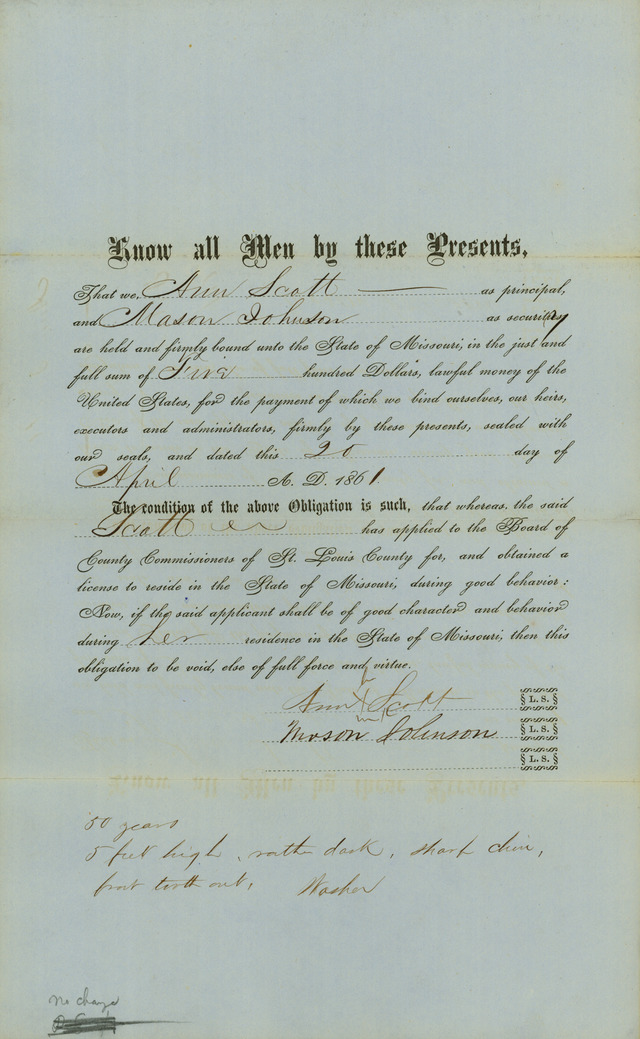 Know all Men by these Presents,
That we, Ann Scott as principal,
and Mason Johnson as security
are held and firmly bound unto the State of Missouri, in the just and
full sum of Five hundred Dollars, lawful money of the
United States, for the payment of which we bind ourselves, our heirs,
executors and administrators, firmly by these presents, sealed with
our seals, and dated this 20 day of
April A. D. 1861.
The condition of the above Obligation is such, that whereas, the said
Scott has applied to the Board of
County Commissioners of St. Louis County for, and obtained a
license to reside in the State of Missouri, during good behavior:
Now, if the said applicant shall be of good character and behavior
during her residence in the State of Missouri, then this
obligation to be void, else of full force and virtue.
Ann X Scott L. S.
Mason Johnson L. S.
L. S.
50 years
5 feet high, rather dark, sharp chin,
front teeth out, Washer
no charge